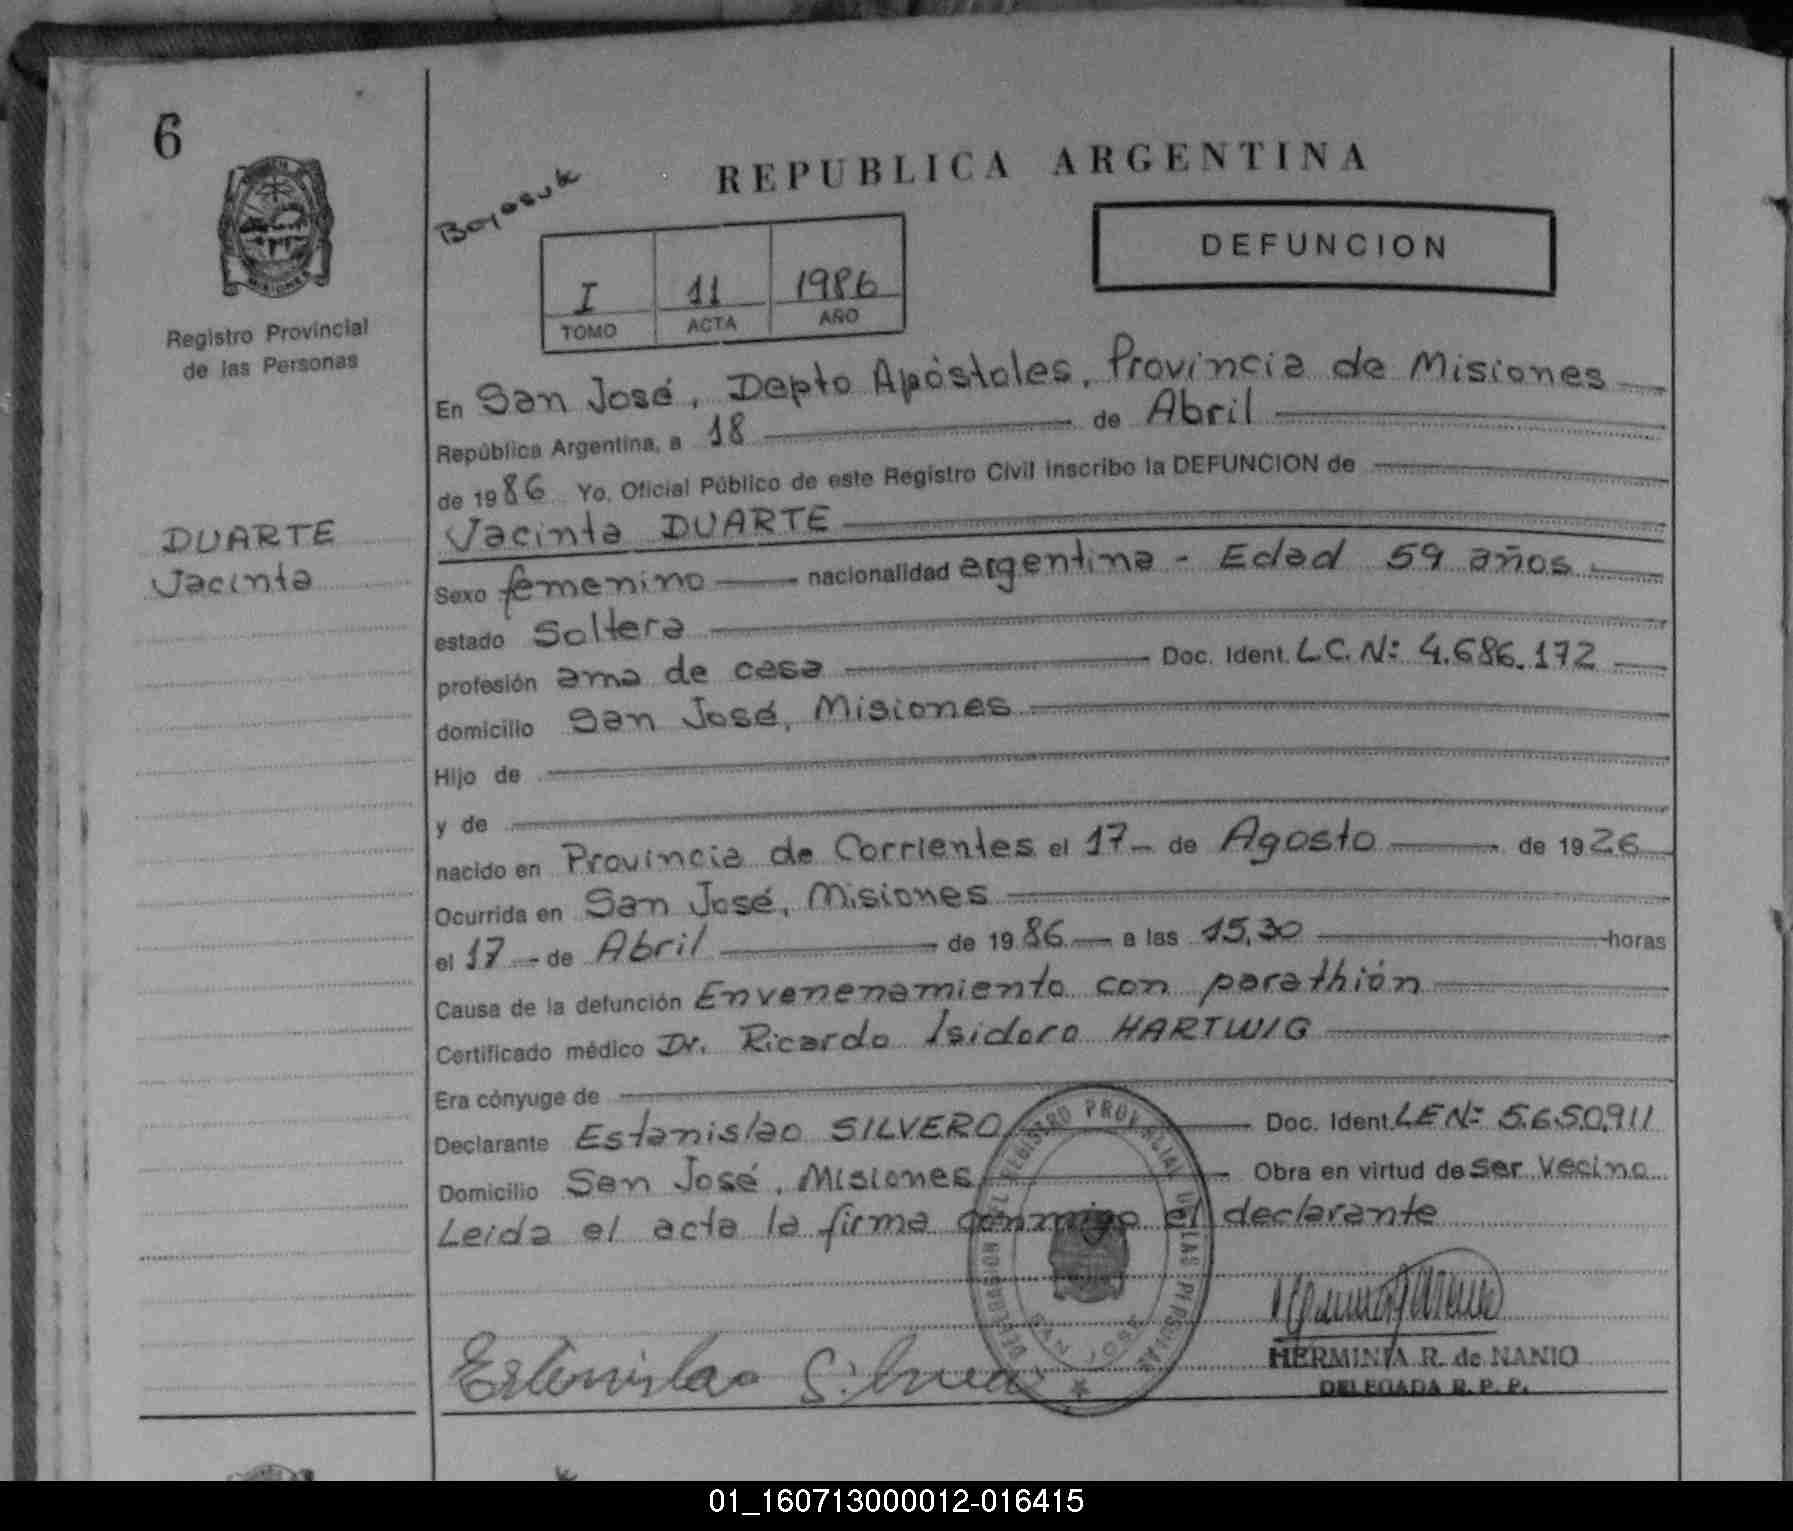 6
REPUBLICA ARGENTINA
DEFUNCION
I 11 1986
TOMO ACTA AÑO
MISIONES
Registro Provincial
de las Personas
DUARTE
Jacinta
En San José, Depto Apóstoles, Provincia de Misiones
República Argentina, a 18 de Abril
de 1986 Yo, Oficial Público de este Registro Civil inscribo la DEFUNCION de
Jacinta DUARTE
Sexo femenino nacionalidad argentina - Edad 59 años
estado Soltera
profesión ama de casa Doc. Ident. L.C. Nº 4.686.172
domicilio San José, Misiones
Hijo de
y de
nacido en Provincia de Corrientes el 17 de Agosto de 1926
Ocurrida en San José, Misiones
el 17 de Abril de 1986 a las 15,30 horas
Causa de la defunción Envenenamiento con parathión
Certificado médico Dr. Ricardo Isidoro HARTWIG
Era cónyuge de
Declarante Estanislao SILVERO Doc. Ident. LE Nº 5.650.911
Domicilio San José, Misiones Obra en virtud de ser vecino
Leida el acta la firma conmigo el declarante
REGISTRO PROVINCIAL DE LAS PERSONAS
SAN JOSE
Estanislao Silvero
HERMINIA R. de NANIO
DELEGADA R. P. P.
01_160713000012-016415